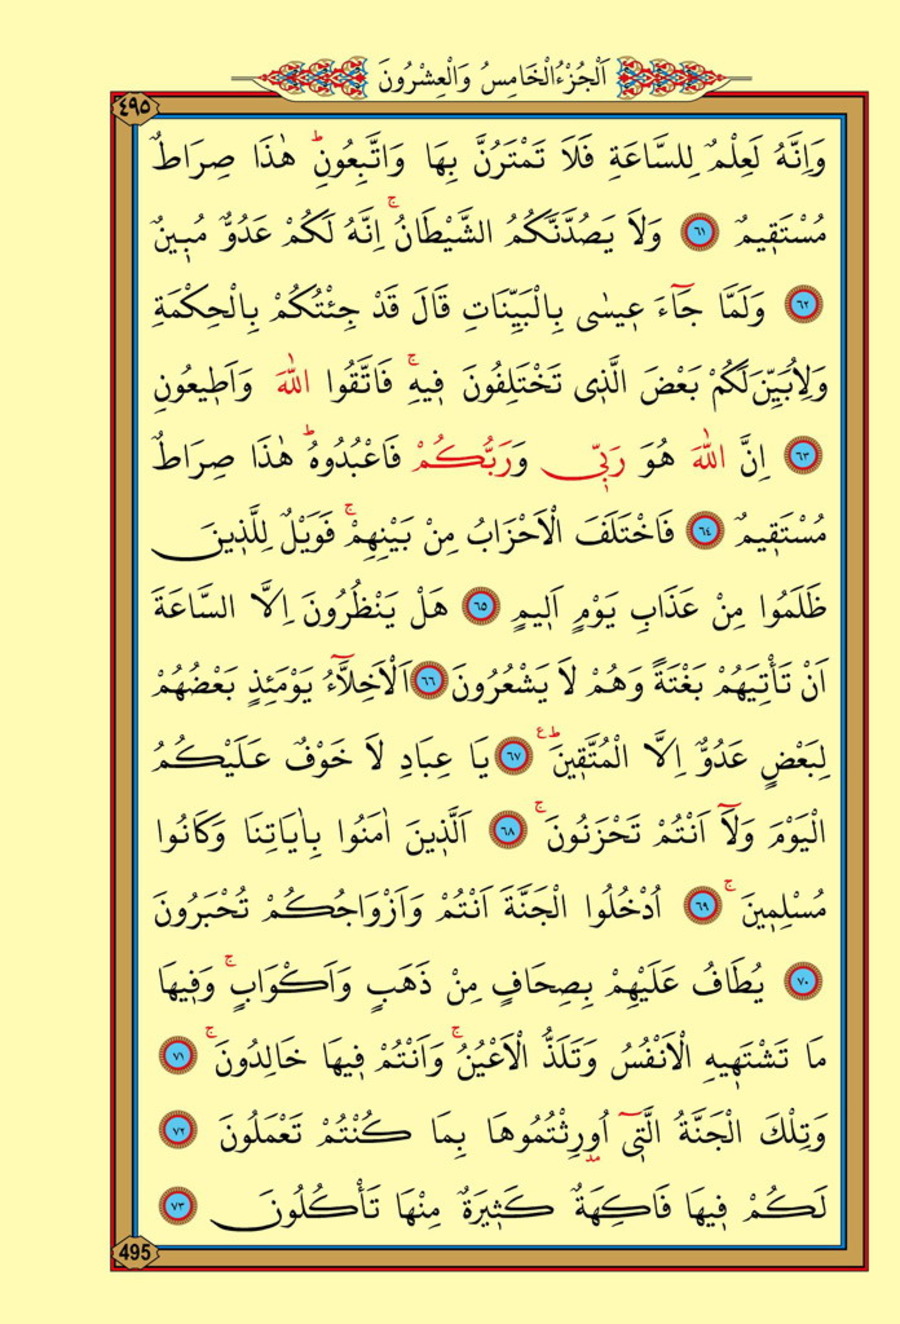 اَلْجُزْءُالْخَامِسُ وَالْعِشْرُونَ
٤٩٥
وَاِنَّهُ لَعِلْمٌ لِلسَّاعَةِ فَلَا تَمْتَرُنَّ بِهَا وَاتَّبِعُونِۜ هٰذَا صِرَاطٌ
مُسْتَقٖيمٌ ٦١ وَلَا يَصُدَّنَّكُمُ الشَّيْطَانُۚ اِنَّهُ لَكُمْ عَدُوٌّ مُبٖينٌ
٦٢ وَلَمَّا جَٓاءَ عٖيسٰى بِالْبَيِّنَاتِ قَالَ قَدْ جِئْتُكُمْ بِالْحِكْمَةِ
وَلِاُبَيِّنَ لَكُمْ بَعْضَ الَّذٖى تَخْتَلِفُونَ فٖيهِۚ فَاتَّقُوا اللّٰهَ وَاَطٖيعُونِ
٦٣ اِنَّ اللّٰهَ هُوَ رَبّٖى وَرَبُّكُمْ فَاعْبُدُوهُۜ هٰذَا صِرَاطٌ
مُسْتَقٖيمٌ ٦٤ فَاخْتَلَفَ الْاَحْزَابُ مِنْ بَيْنِهِمْۚ فَوَيْلٌ لِلَّذٖينَ
ظَلَمُوا مِنْ عَذَابِ يَوْمٍ اَلٖيمٍ ٦٥ هَلْ يَنْظُرُونَ اِلَّا السَّاعَةَ
اَنْ تَأْتِيَهُمْ بَغْتَةً وَهُمْ لَا يَشْعُرُونَ ٦٦ اَلْاَخِلَّٓاءُ يَوْمَئِذٍ بَعْضُهُمْ
لِبَعْضٍ عَدُوٌّ اِلَّا الْمُتَّقٖينَۜ ع ٦٧ يَا عِبَادِ لَا خَوْفٌ عَلَيْكُمُ
الْيَوْمَ وَلَٓا اَنْتُمْ تَحْزَنُونَۚ ٦٨ اَلَّذٖينَ اٰمَنُوا بِاٰيَاتِنَا وَكَانُوا
مُسْلِمٖينَۚ ٦٩ اُدْخُلُوا الْجَنَّةَ اَنْتُمْ وَاَزْوَاجُكُمْ تُحْبَرُونَ
٧٠ يُطَافُ عَلَيْهِمْ بِصِحَافٍ مِنْ ذَهَبٍ وَاَكْوَابٍۚ وَفٖيهَا
مَا تَشْتَهٖيهِ الْاَنْفُسُ وَتَلَذُّ الْاَعْيُنُۚ وَاَنْتُمْ فٖيهَا خَالِدُونَۚ ٧١
وَتِلْكَ الْجَنَّةُ الَّتٖٓى اُورِثْتُمُوهَا بِمَا كُنْتُمْ تَعْمَلُونَ ٧٢
لَكُمْ فٖيهَا فَاكِهَةٌ كَثٖيرَةٌ مِنْهَا تَأْكُلُونَ ٧٣
495